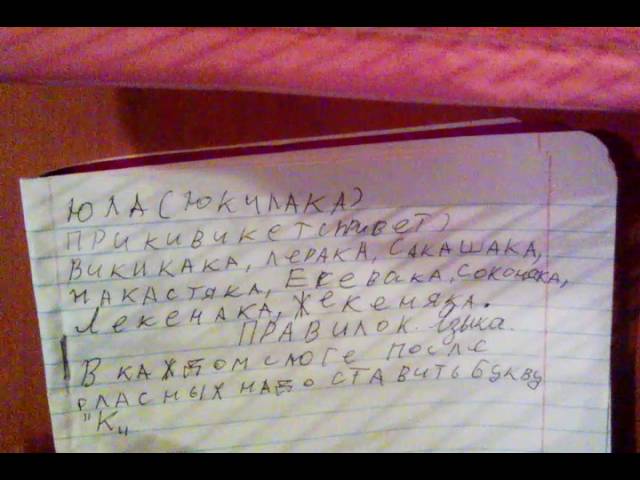 ЮЛА (ЮКИЛАКА)
ПРИКИВИКЕТ (привет)
ВИКИКАКА, ЛЕРАКА, САКАШАКА,
НАКАСТЯКА, ЕКЕВАКА, СОКОНЯКА,
ЛЕКЕНАКА, ЖЕКЕНЯКА.
ПРАВИЛОК языка.
В КАЖДОМ СЛОГЕ ПОСЛЕ
ГЛАСНЫХ НАДО СТАВИТЬ БУКВУ
"К„